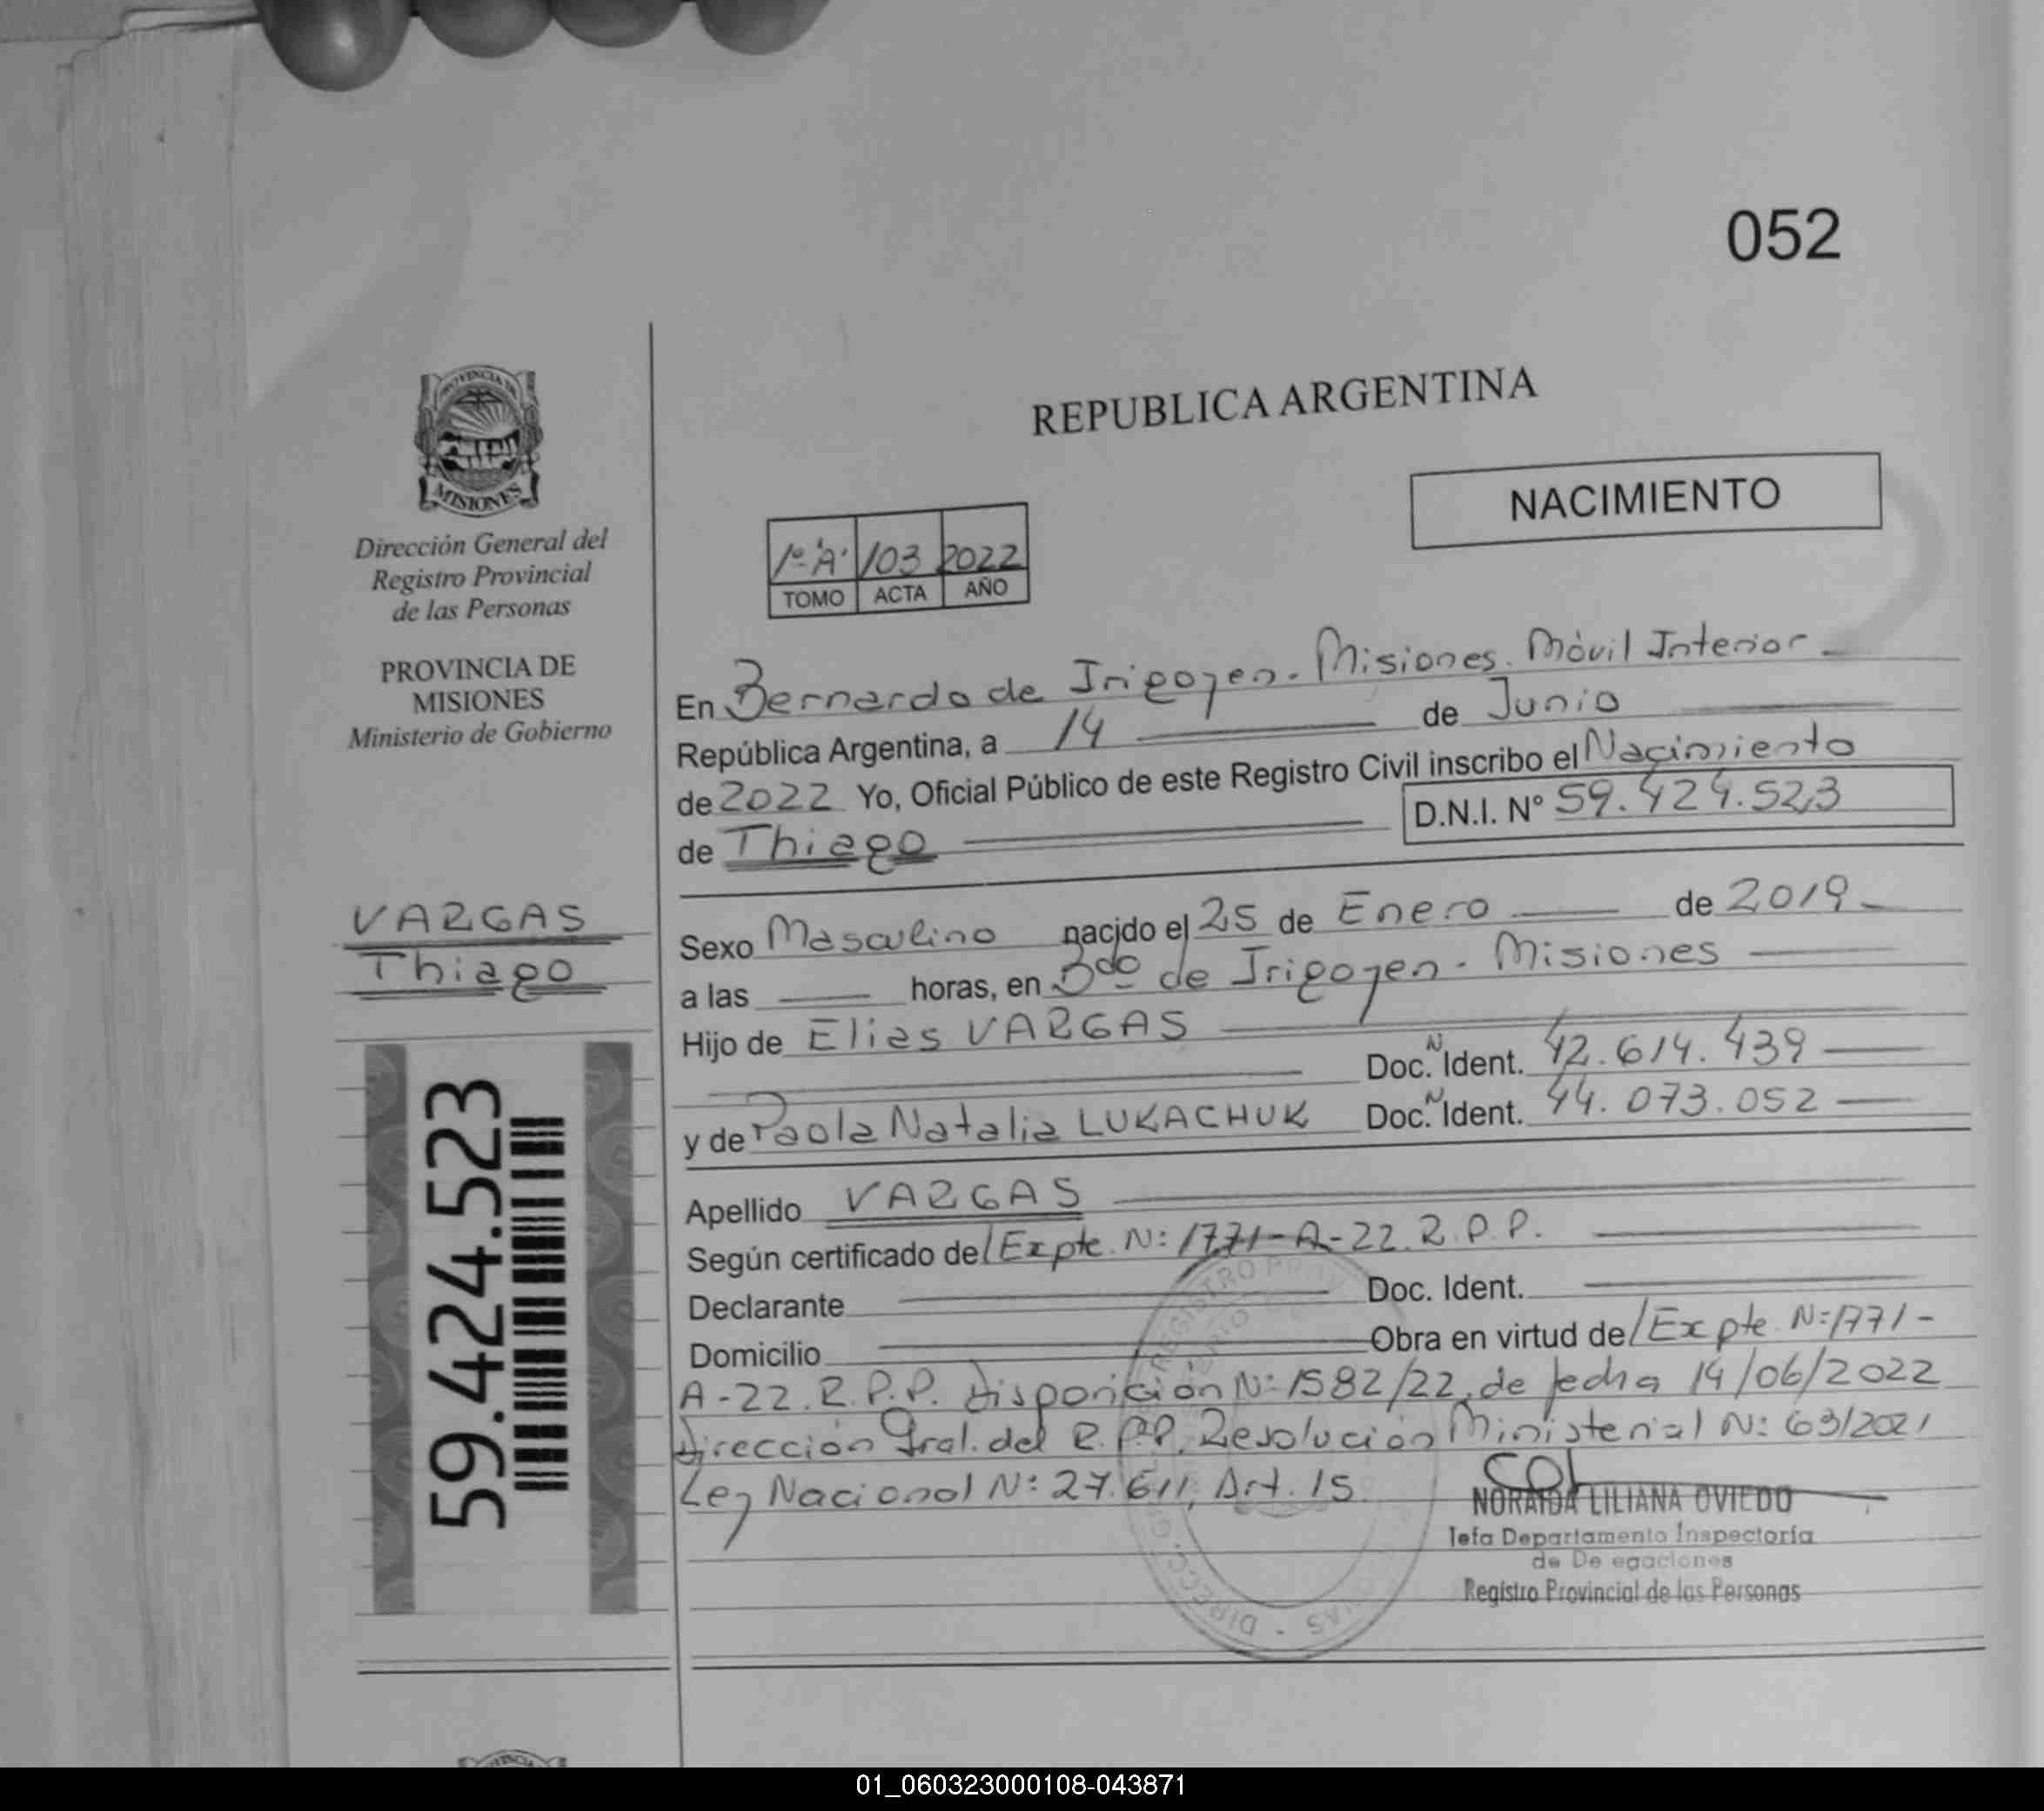 052
REPUBLICA ARGENTINA
NACIMIENTO
PROVINCIA DE
MISIONES
Dirección General del
Registro Provincial
de las Personas
PROVINCIA DE
MISIONES
Ministerio de Gobierno
VARGAS
Thiago
59.424.523
1º "A" 103 2022
TOMO ACTA AÑO
En Bernardo de Irigoyen. Misiones. Móvil Interior
República Argentina, a 14 de Junio
de 2022 Yo, Oficial Público de este Registro Civil inscribo el Nacimiento
D.N.I. Nº 59.424.523
de Thiago
Sexo Masculino nacido el 25 de Enero de 2019
a las horas, en Bdo de Irigoyen. Misiones
Hijo de Elias VARGAS
Doc. N Ident. 42.614.439
y de Paola Natalia LUKACHUK Doc. N Ident. 44.073.052
Apellido VARGAS
Según certificado de/Expte. Nº: 1771-A-22. R.P.P.
Declarante Doc. Ident.
Domicilio Obra en virtud de/Expte. Nº: 1771-
A-22. R.P.P. Disposición Nº: 1582/22, de fecha 14/06/2022
Dirección Gral. del R.P.P. Resolución Ministerial Nº: 63/2021
Ley Nacional Nº: 27.611, Art. 15.
NORAIDA LILIANA OVIEDO
Jefa Departamento Inspectoría
de De egaciones
Registro Provincial de las Personas
01_060323000108-043871